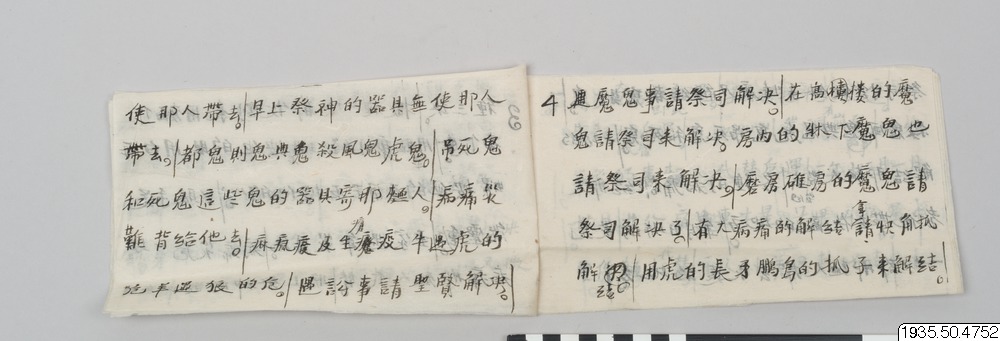 使那人帶去。早上祭神的器具無使那人
帶去。都鬼則鬼與鬼殺風鬼虎鬼。吊死鬼
和死鬼這些鬼的器具寄那麵人。病痛災
難背給他去。麻瘋瘦及生瘡疫牛遇虎的
羊遇狼的危。遇訟事請聖賢解決。
3
4 與魔鬼事請祭司解决。在高欄楼的魔
鬼請祭司来解决。房內的牀下魔鬼也
請祭司来解决。磨房碓房的魔鬼請
祭司解决了。有大病痛的解結拿快角抵
解結。用虎的長矛鵬鳥的抓子来解結
1935.50.4752